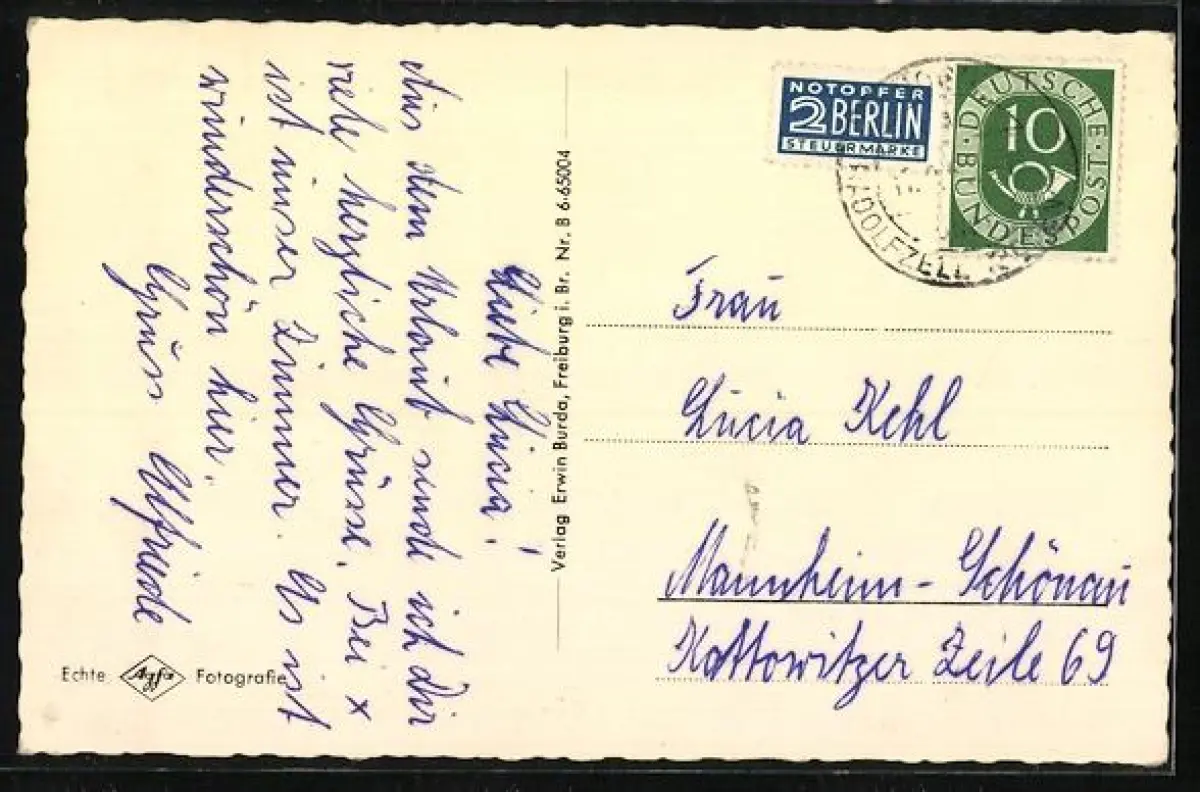 Liebe Lucia!
Aus dem Urlaub sende ich Dir
viele herzliche Grüsse. Bei x
ist unser Zimmer. Es ist
wunderschön hier.
Gruss Elfriede
Verlag Erwin Burda, Freiburg i. Br. Nr. B 6.65004
NOTOPFER
2 BERLIN
STEUERMARKE
DEUTSCHE
BUNDESPOST
10
RADOLFZELL
Frau
Lucia Kehl
Mannheim-Schönau
Kattowitzer Zeile 69
Echte Agfa Fotografie